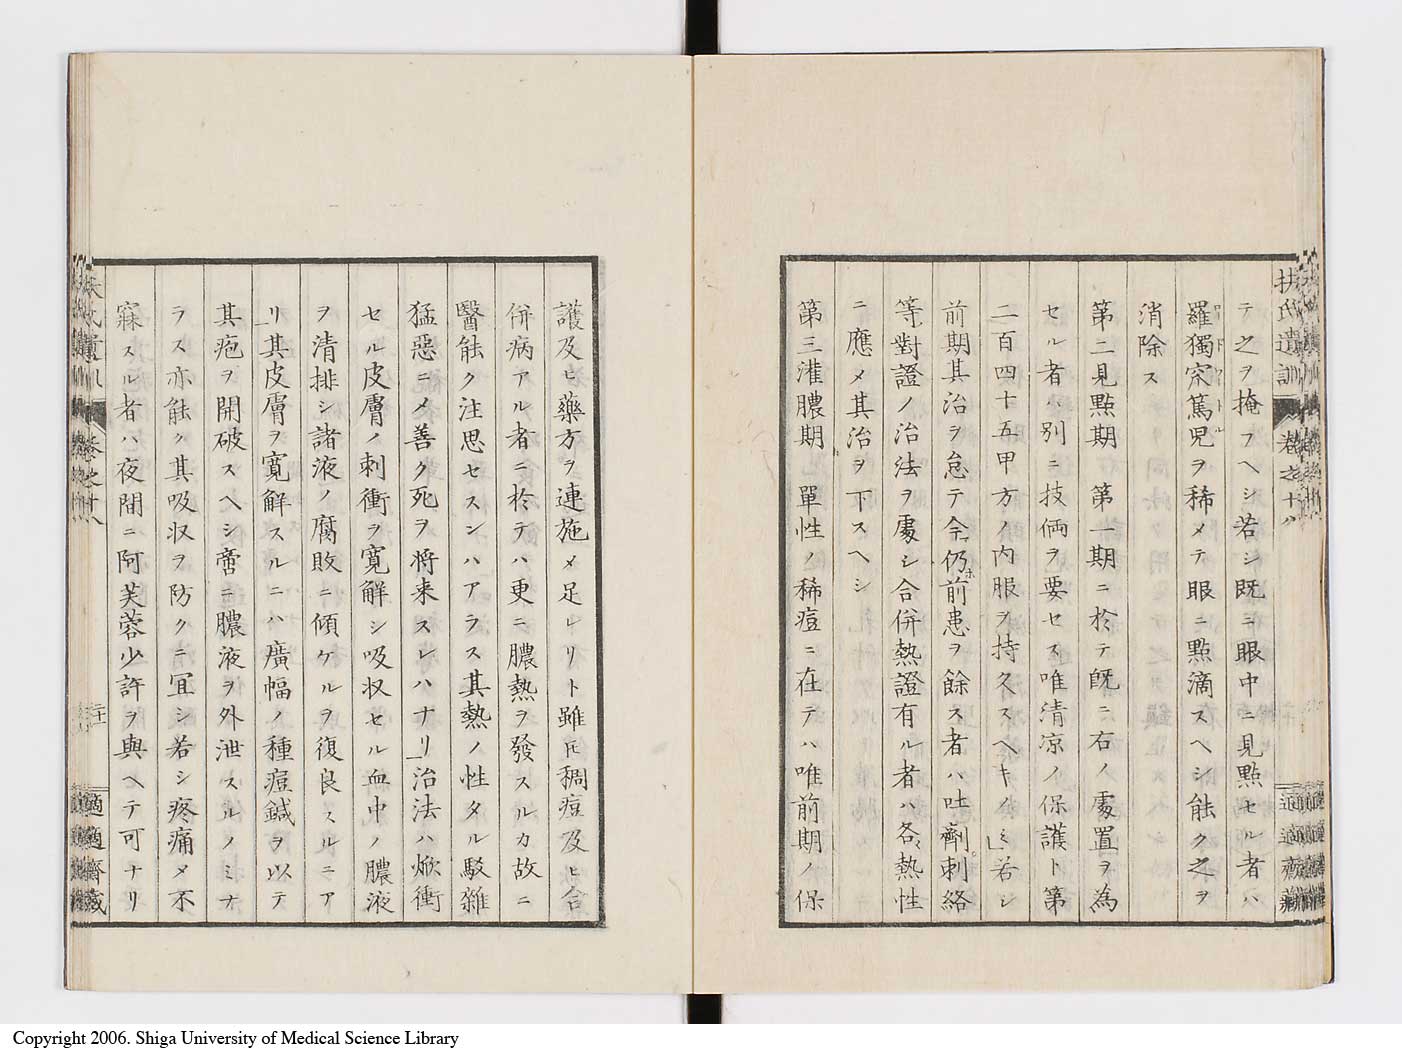 扶氏遺訓 卷之十八
適適齋藏
テ之ヲ掩フヘシ若シ既ニ眼中ニ見點セル者ハ
羅獨究篤児ヲ稀メテ眼ニ點滴スヘシ能ク之ヲ
消除ス
第二見點期 第一期ニ於テ既ニ右ノ處置ヲ為
セル者ハ別ニ技倆ヲ要セス唯清凉ノ保護ト第
二百四十五甲方ノ内服ヲ持久スヘキノミ若シ
前期其治ヲ怠テ今仍ホ前患ヲ餘ス者ハ吐劑刺絡
等對證ノ治法ヲ處シ合併熱證有ル者ハ各熱性
ニ應メ其治ヲ下スヘシ
第三灌膿期 單性ノ稀痘ニ在テハ唯前期ノ保
護及ヒ藥方ヲ連施メ足レリト雖𪜈稠痘及ヒ合
併病アル者ニ於テハ更ニ膿熱ヲ發スルカ故ニ
醫能ク注思セスンハアラス其熱ノ性タル駁雜
猛惡ニメ善ク死ヲ将来スレハナリ治法ハ焮衝
セル皮膚ノ刺衝ヲ寛解シ吸収セル血中ノ膿液
ヲ清排シ諸液ノ腐敗ニ傾ケルヲ復良スルニア
リ其皮膚ヲ寛解スルニハ廣幅ノ種痘鍼ヲ以テ
其疱ヲ開破スヘシ啻ニ膿液ヲ外泄スルノミナ
ラス亦能ク其吸収ヲ防クニ冝シ若シ疼痛メ不
寐スル者ハ夜間ニ阿芙蓉少許ヲ與ヘテ可ナリ
適適齋藏
Copyright 2006. Shiga University of Medical Science Library